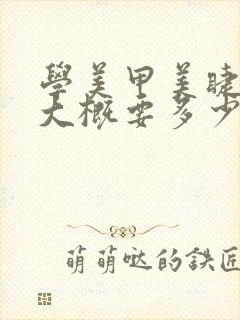 學美甲美睫
大概要多少
萌萌哒的鉄匠